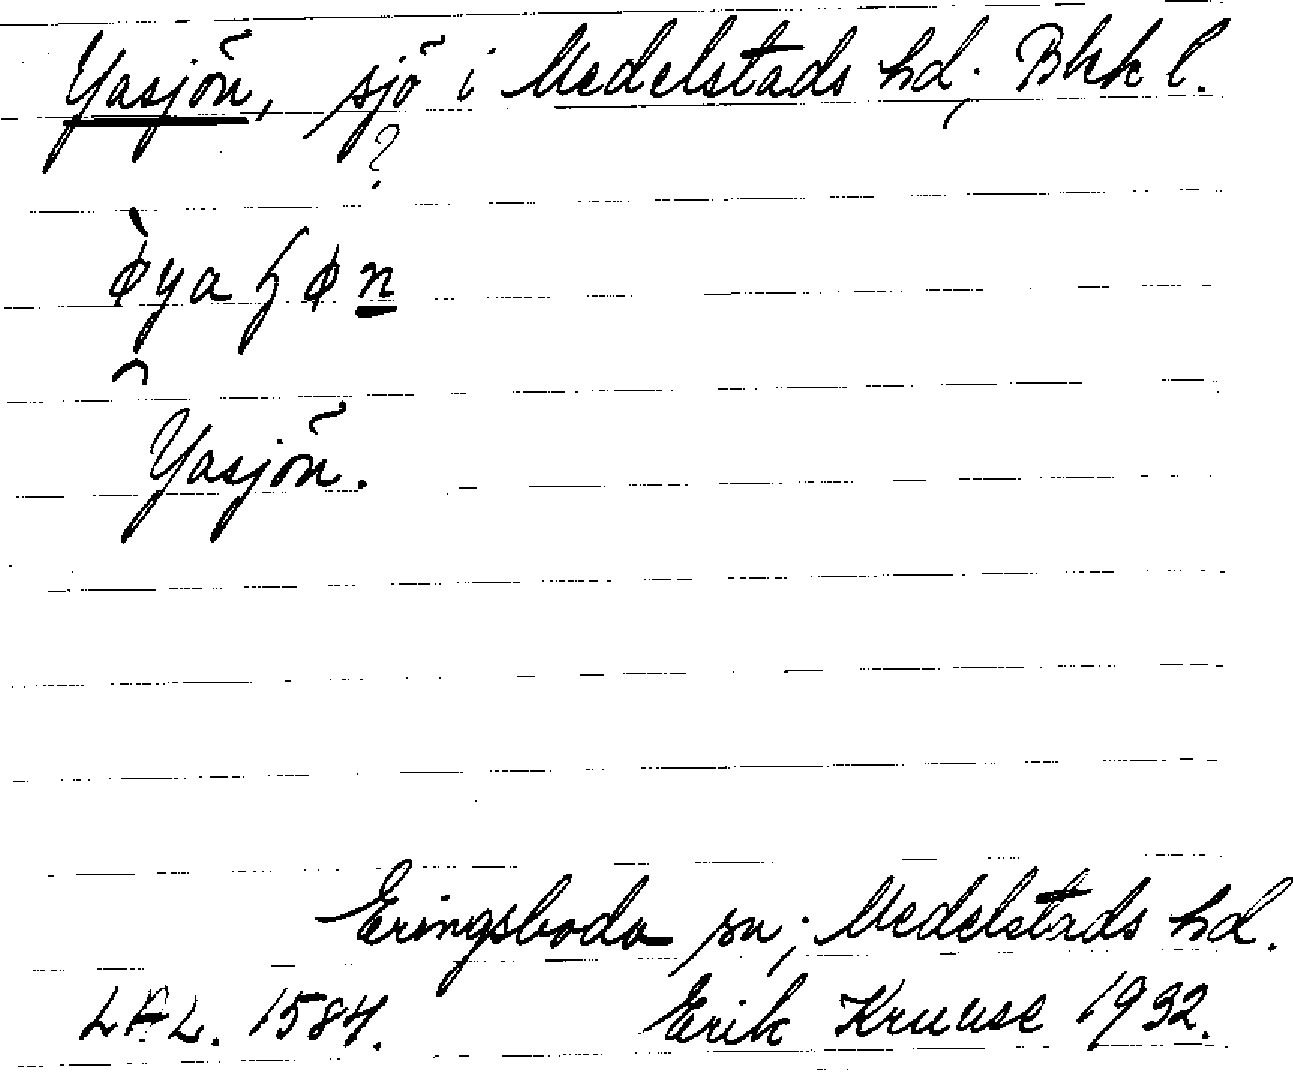 Yasjön, sjö i Medelstads hd; Blkk l.
?
Yasjön.
Eringsboda sn; Medelstads hd.
LAL. 1584. Erik Kruuse 1932.